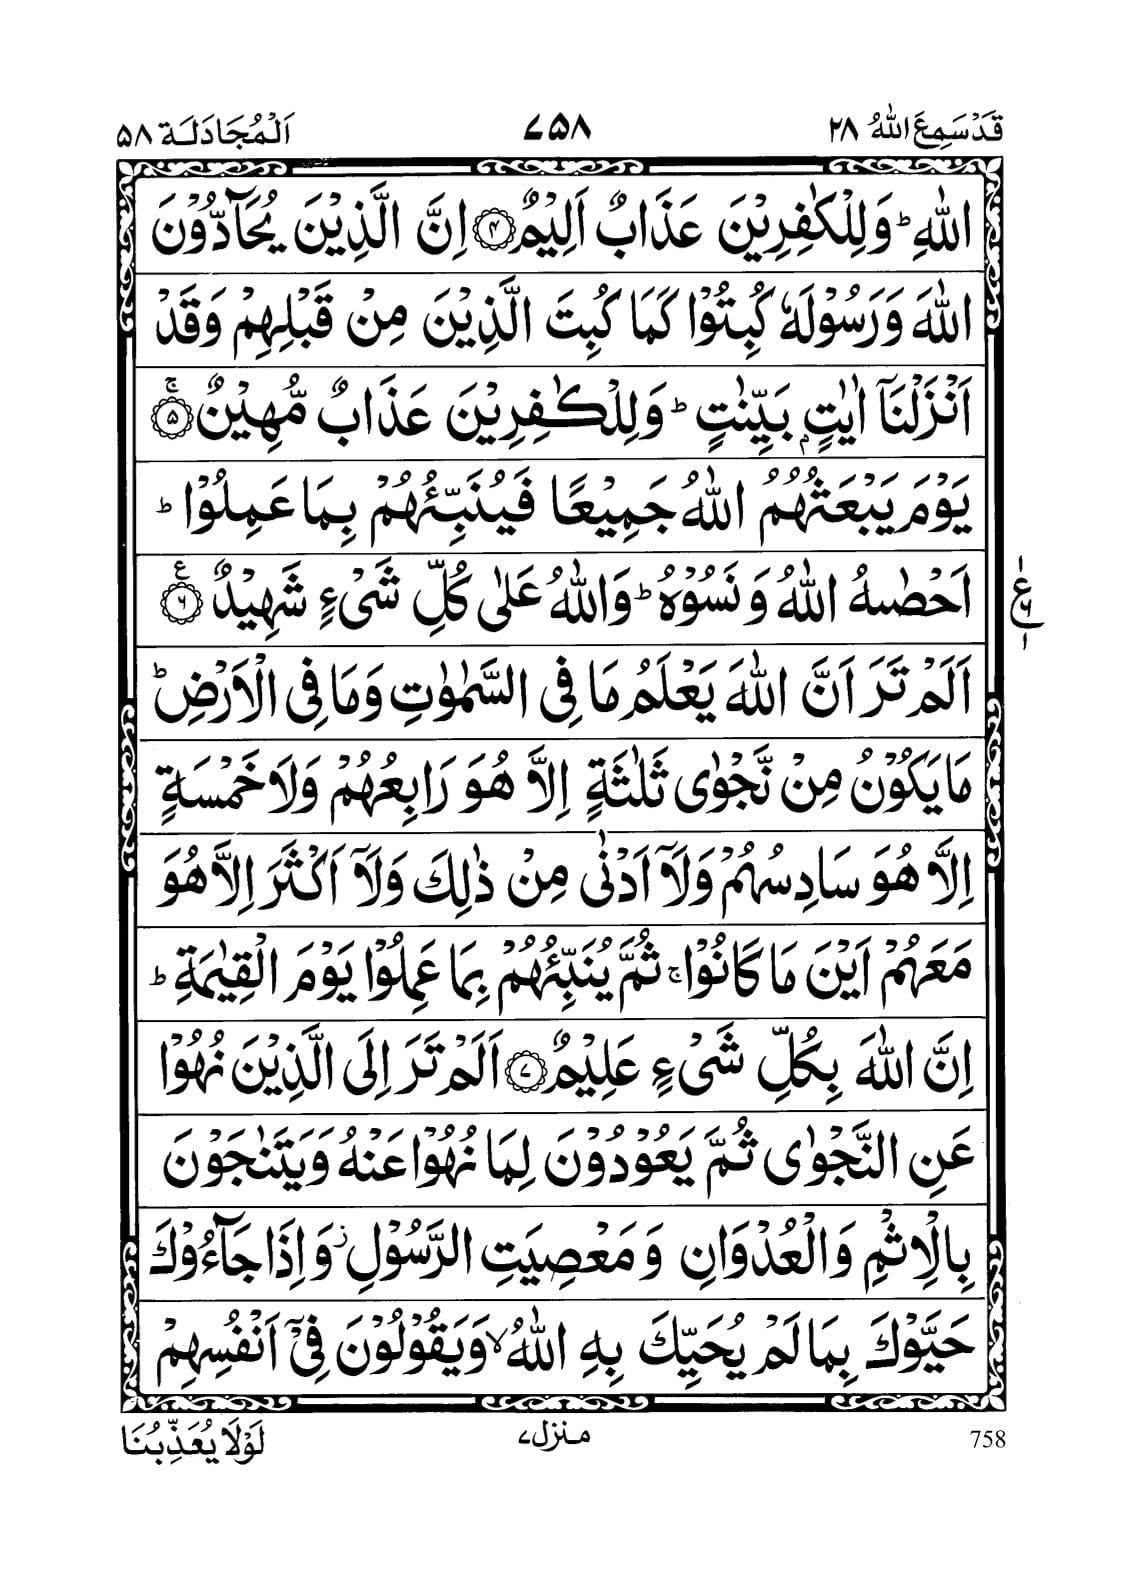 قَدْ سَمِعَ اللّٰهُ ۲۸
۷۵۸
اَلْمُجَادَلَة ۵۸
اللّٰهِ ؕ وَلِلْكٰفِرِيْنَ عَذَابٌ اَلِيْمٌ ﴿۴﴾ اِنَّ الَّذِيْنَ يُحَآدُّوْنَ
اللّٰهَ وَرَسُوْلَهٗ كُبِتُوْا كَمَا كُبِتَ الَّذِيْنَ مِنْ قَبْلِهِمْ وَقَدْ
اَنْزَلْنَاۤ اٰيٰتٍۭ بَيِّنٰتٍ ؕ وَلِلْكٰفِرِيْنَ عَذَابٌ مُّهِيْنٌ ۚ﴿۵﴾
يَوْمَ يَبْعَثُهُمُ اللّٰهُ جَمِيْعًا فَيُنَبِّئُهُمْ بِمَا عَمِلُوْا ؕ
اَحْصٰىهُ اللّٰهُ وَ نَسُوْهُ ؕ وَاللّٰهُ عَلٰى كُلِّ شَىْءٍ شَهِيْدٌ ﴿۶﴾ ع
۱
ع
۶
۱
اَلَمْ تَرَ اَنَّ اللّٰهَ يَعْلَمُ مَا فِى السَّمٰوٰتِ وَمَا فِى الْاَرْضِ ؕ
مَا يَكُوْنُ مِنْ نَّجْوٰى ثَلٰثَةٍ اِلَّا هُوَ رَابِعُهُمْ وَلَا خَمْسَةٍ
اِلَّا هُوَ سَادِسُهُمْ وَلَاۤ اَدْنٰى مِنْ ذٰلِكَ وَلَاۤ اَكْثَرَ اِلَّا هُوَ
مَعَهُمْ اَيْنَ مَا كَانُوْا ۚ ثُمَّ يُنَبِّئُهُمْ بِمَا عَمِلُوْا يَوْمَ الْقِيٰمَةِ ؕ
اِنَّ اللّٰهَ بِكُلِّ شَىْءٍ عَلِيْمٌ ﴿۷﴾ اَلَمْ تَرَ اِلَى الَّذِيْنَ نُهُوْا
عَنِ النَّجْوٰى ثُمَّ يَعُوْدُوْنَ لِمَا نُهُوْا عَنْهُ وَيَتَنٰجَوْنَ
بِالْاِثْمِ وَالْعُدْوَانِ وَ مَعْصِيَتِ الرَّسُوْلِ ز وَاِذَا جَآءُوْكَ
حَيَّوْكَ بِمَا لَمْ يُحَيِّكَ بِهِ اللّٰهُ ۙ وَيَقُوْلُوْنَ فِىْۤ اَنْفُسِهِمْ
758
منزل ۷
لَوْلَا يُعَذِّبُنَا